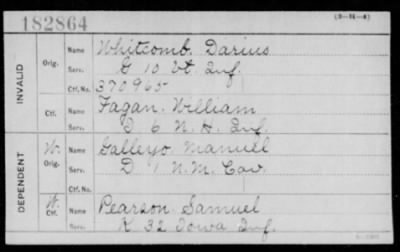 182864
(3-14-4)
INVALID
Orig. Name Whitcomb, Darius
Serv. G 10 Vt. Inf.
Ctf. No. 370965
Ctf. Name Fagan, William
Serv. I 6 N.H. Inf.
DEPENDENT
W. Orig. Name Galleyo, Manuel
Serv. D 1 N.M. Cav.
Ctf. No.
W. Ctf. Name Pearson, Samuel
Serv. K 32 Iowa Inf.